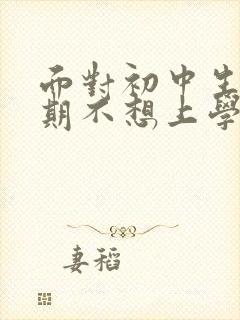 而對初中生
期不想上學
妻稻